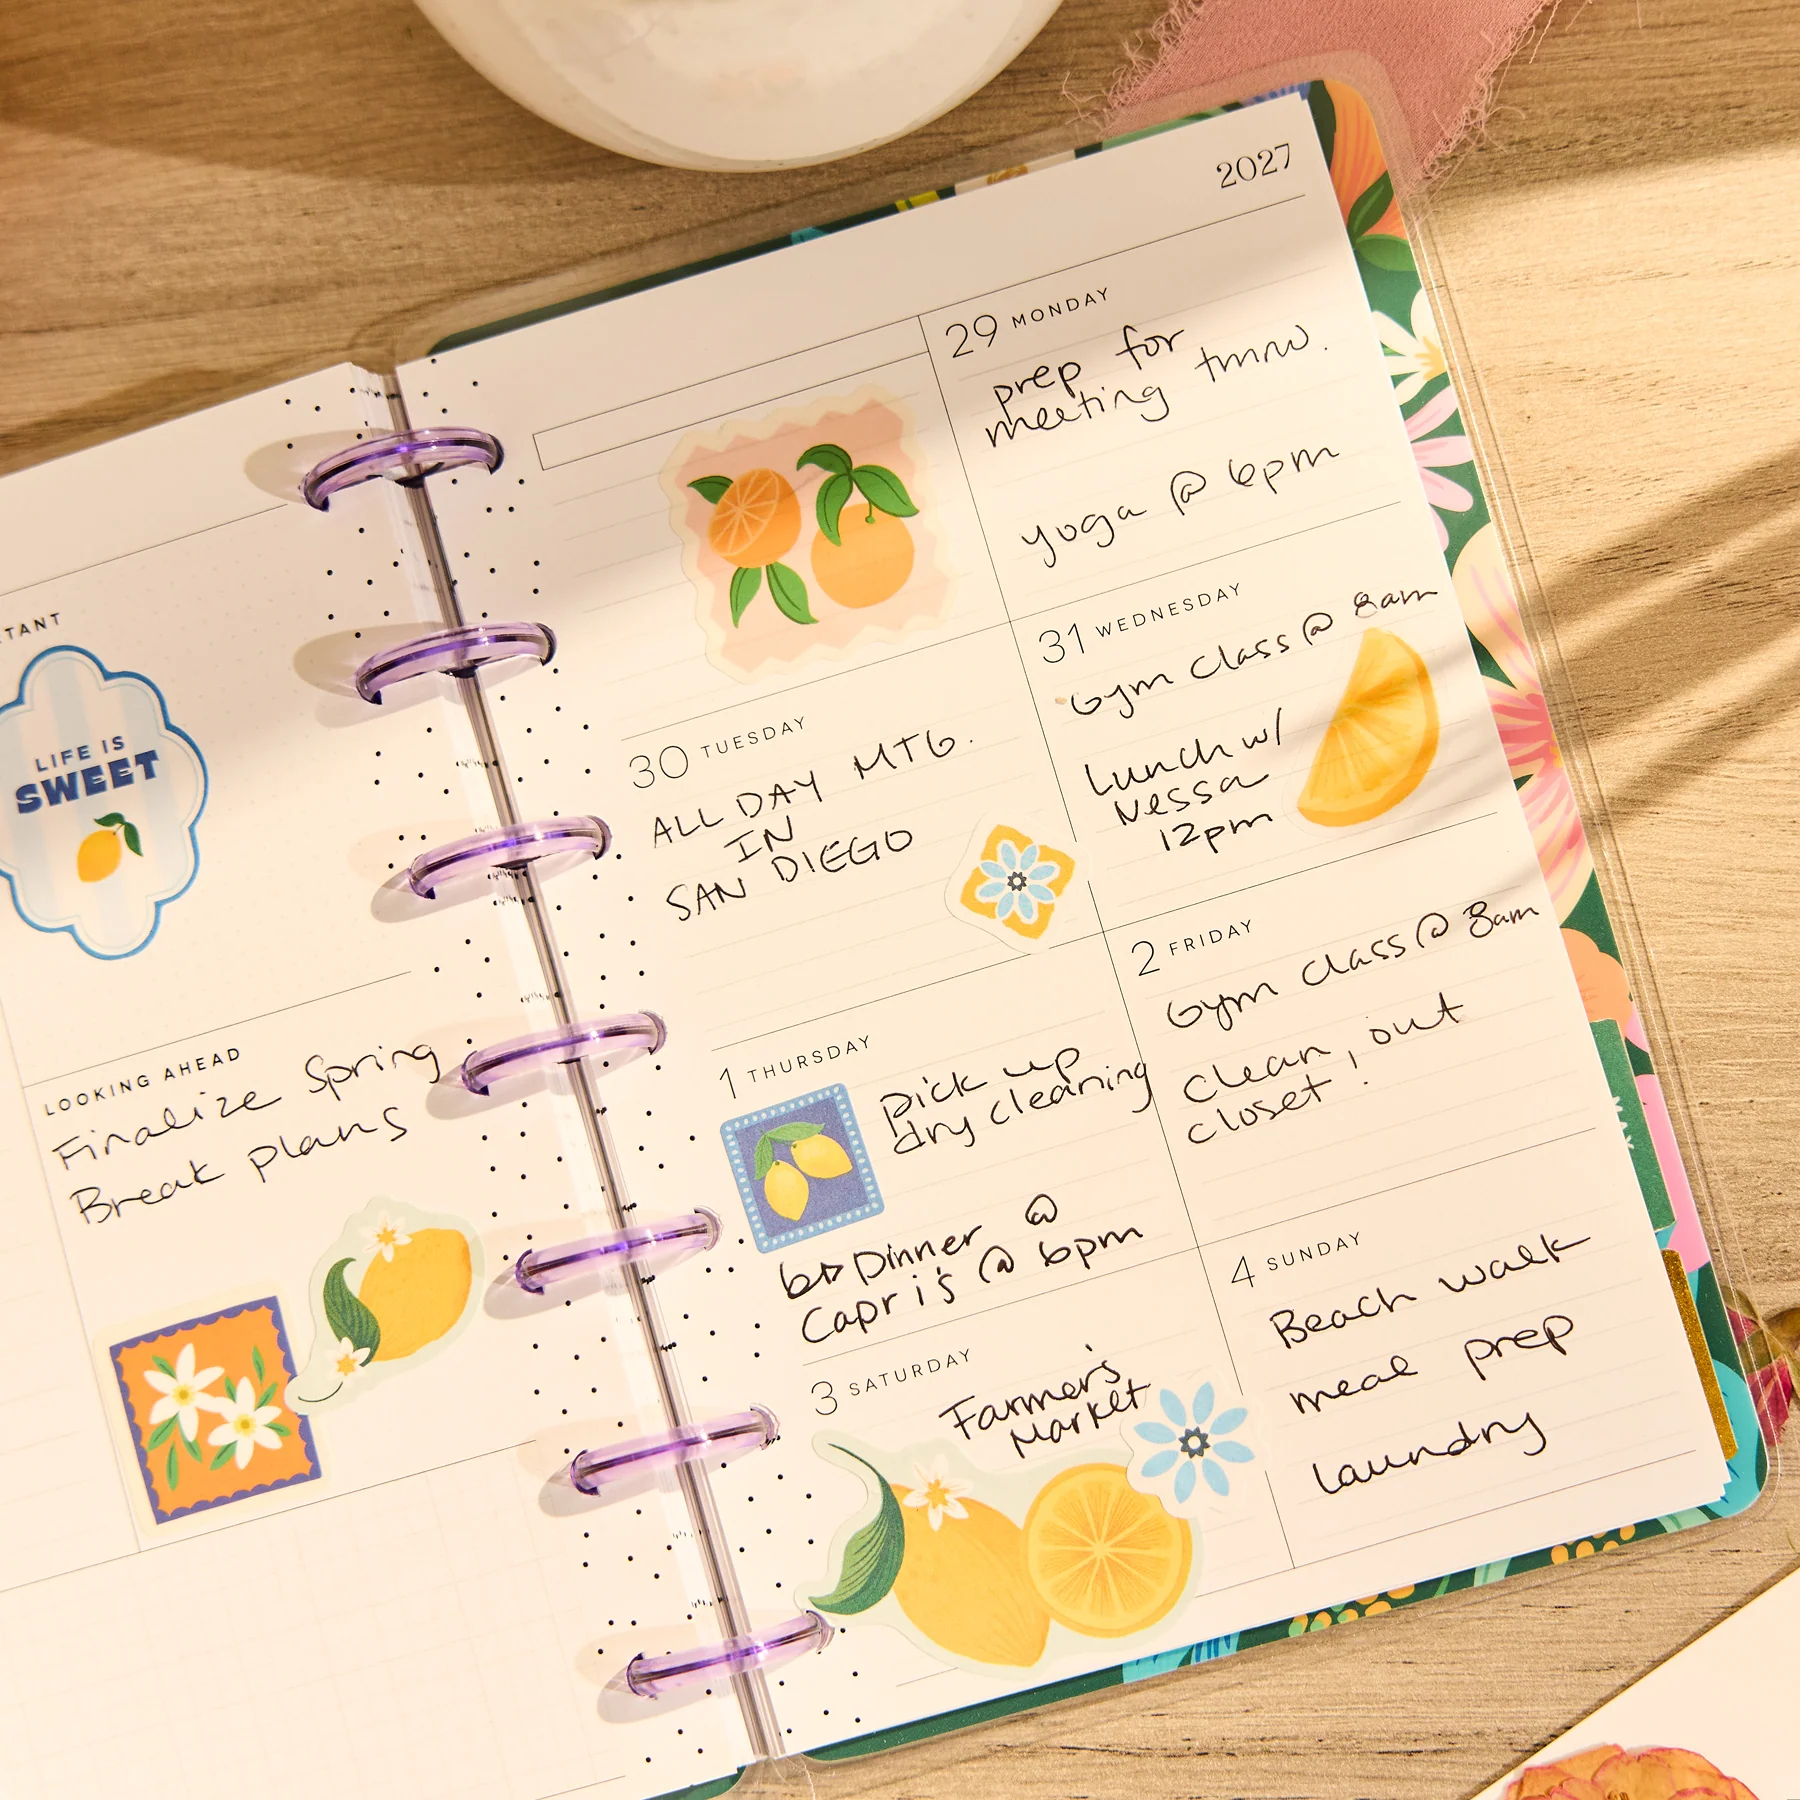 TANT
LIFE IS
SWEET
LOOKING AHEAD
Finalize Spring
Break plans
2027
29 MONDAY
prep for
meeting tmrw.
yoga @ 6pm
30 TUESDAY
ALL DAY MTG.
IN
SAN DIEGO
31 WEDNESDAY
Gym Class @ 8am
Lunch w/
Nessa
12pm
1 THURSDAY
pick up
dry cleaning
Dinner @
Capri's @ 6pm
2 FRIDAY
Gym Class @ 8am
clean out
closet!
3 SATURDAY
Farmer's
Market
4 SUNDAY
Beach walk
meal prep
laundry